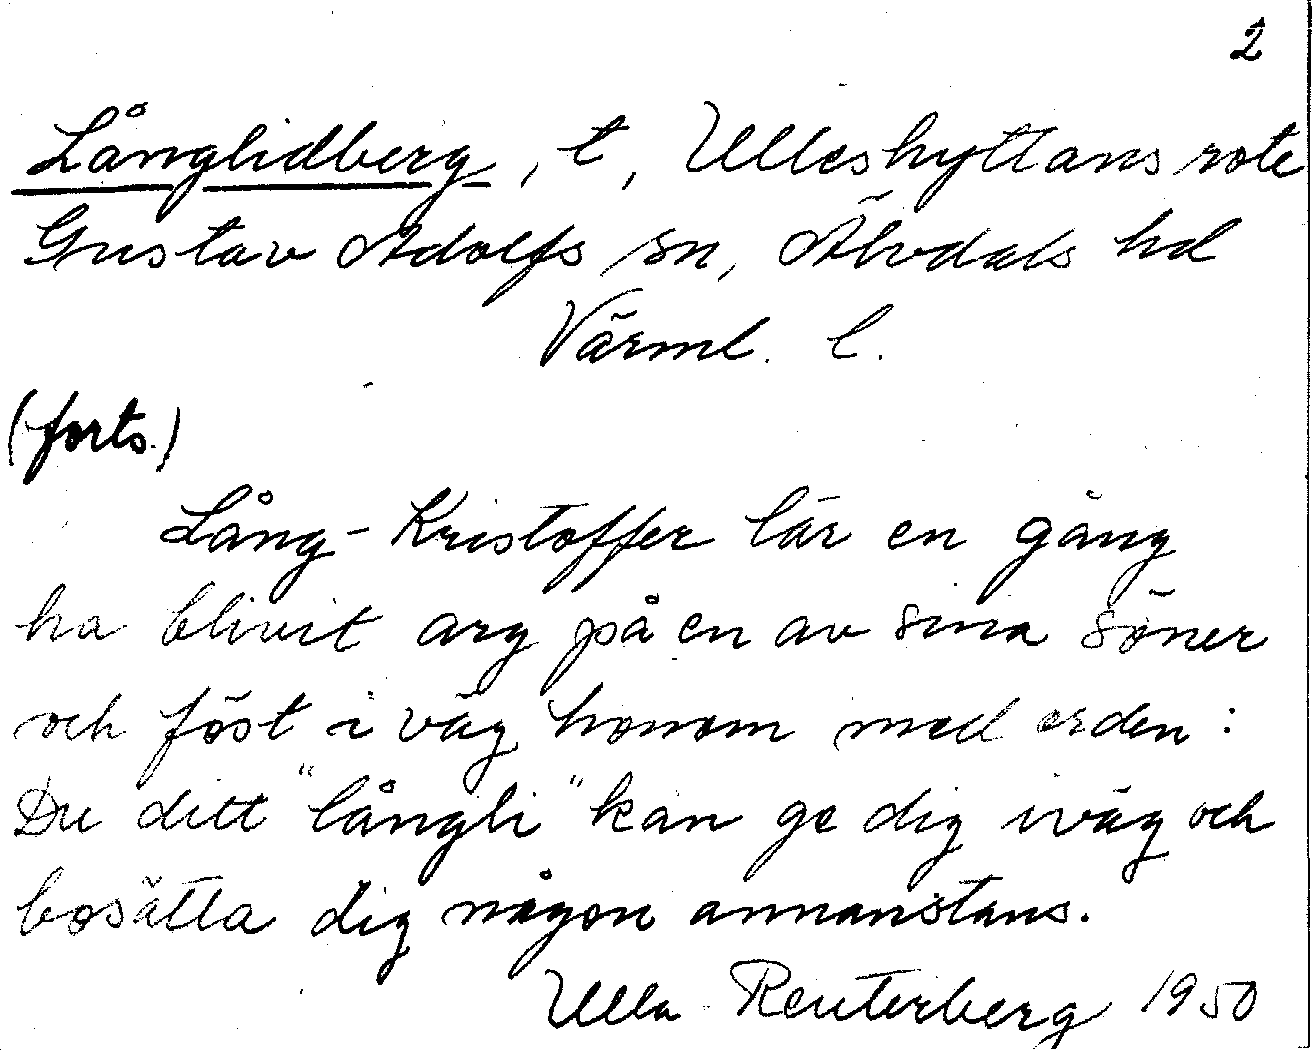 2
Långlidberg, t, Ulleshyttans rote
Gustav Adolfs sn, Älvdals hd
Värml. l.
(forts.)
Lång-Kristoffer lär en gång
ha blivit arg på en av sina söner
och föst i väg honom med orden:
Du ditt "långli" kan ge dig iväg och
bosätta dig någon annanstans.
Ulla Reuterberg 1950